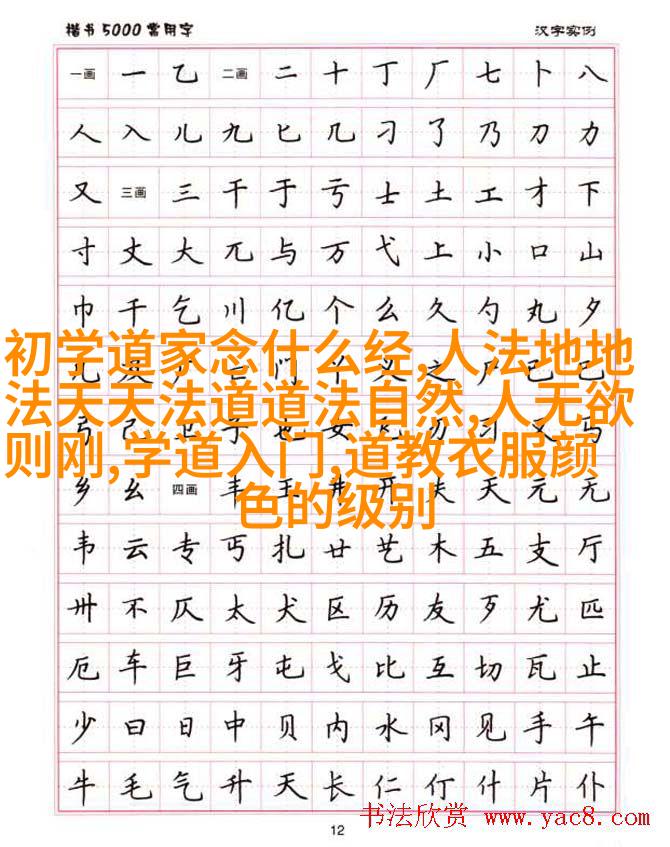 楷书5000常用字 汉字实例
一画 一 乙 二画 二 十 丁 厂 七 卜 八
人 入 儿 九 匕 几 刁 了 乃 刀 力
又 三画 三 干 于 亏 士 土 工 才 下
寸 丈 大 兀 与 万 弋 上 小 口 山
巾 千 乞 川 亿 个 么 久 勺 丸 夕
初学道家念什么经,人法地地
法天天法道道法自然,人无欲
则刚,学道入门,道教衣服颜
色的级别
乡 幺 四画 丰 王 井 开 夫 天 元 无
韦 云 专 丐 扎 廿 艺 木 五 支 厅
卅 不 仄 太 犬 区 历 友 歹 尤 匹
厄 车 巨 牙 屯 戈 比 互 切 瓦 止
少 曰 日 中 贝 内 水 冈 见 手 午
牛 毛 气 升 夭 长 仁 仃 什 片 仆
12
书法欣赏 www.yac8.com